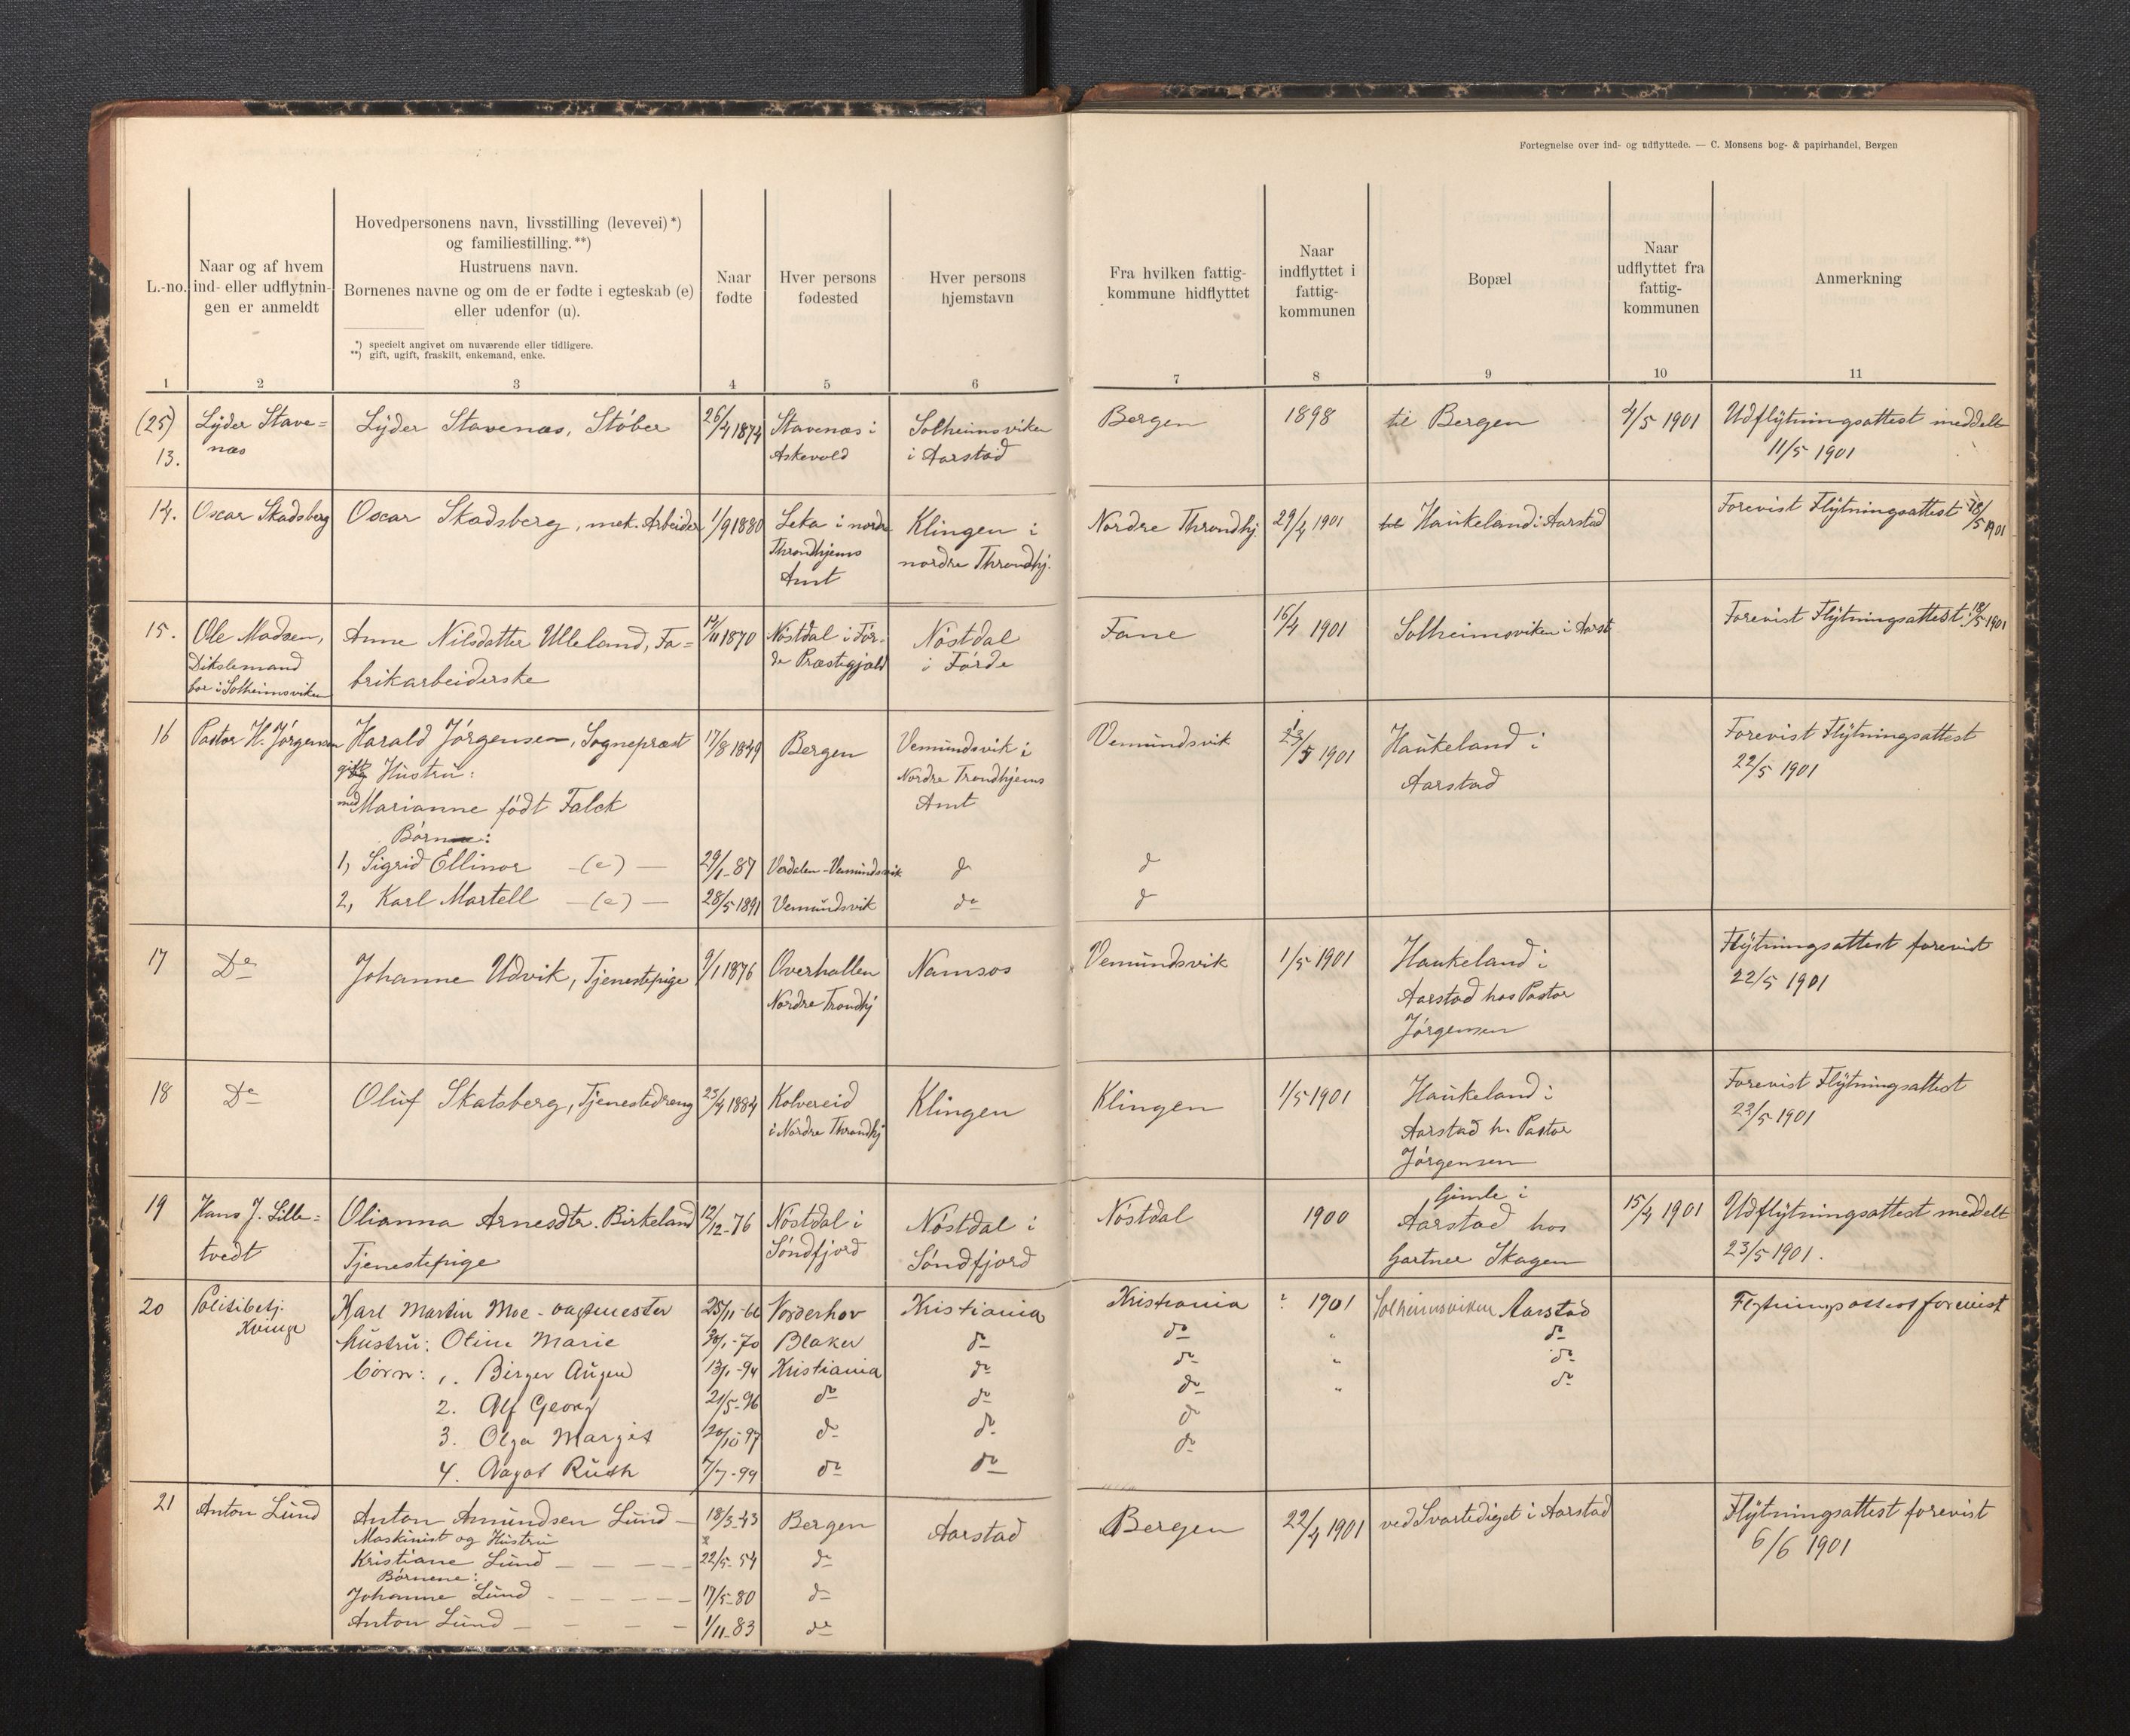 Fortegnelse over ind- og udflyttede. — C. Monsens bog- & papirhandel, Bergen
L.-no.
Naar og af hvem
ind- eller udflytnin-
gen er anmeldt
Hovedpersonens navn, livsstilling (levevei) *)
og familiestilling. **)
Hustruens navn.
Børnenes navne og om de er fødte i egteskab (e)
eller udenfor (u).
*) specielt angivet om nuværende eller tidligere.
**) gift, ugift, fraskilt, enkemand, enke.
Naar
fødte
Hver persons
fødested
Hver persons
hjemstavn
Fra hvilken fattig-
kommune hidflyttet
Naar
indflyttet i
fattig-
kommunen
Bopæl
Naar
udflyttet fra
fattig-
kommunen
Anmerkning
1 2 3 4 5 6 7 8 9 10 11
(25) Lyder Stave= Lyder Stavenæs, Støber 26/4 1874 Stavenæs i Solheimsviken Bergen 1898 til Bergen 4/5 1901 Udflytningsattest meddelt
13. næs Askevold i Aarstad 11/5 1901
14. Oscar Skadsberg Oscar Skadsberg, mek. Arbeider 1/9 1880 Leka i nordre Klingen i Nordre Throndhj. 29/4 1901 Haukeland i Aarstad Forevist Flytningsattest 18/5 1901
Throndhjems nordre Throndhj.
Amt
15. Ole Madsen, Anne Nilsdatter Ulleland, Fa= 14/11 1870 Nøstdal i Før- Nøstdal Fane 16/4 1901 Solheimsviken i Aarst Forevist Flytningsattest 18/5 1901
Dikslemand brikarbeiderske de Præstegjæld i Førde
bor i Solheimsviken
16 Pastor H. Jørgensen Harald Jørgensen, Sognepræst 17/8 1849 Bergen Vemundsvik i Vemundsvik /5 1901 Haukeland i Forevist Flytningsattest
gift Hustru: Nordre Trondhjems Aarstad 22/5 1901
med Marianne født Falck Amt
Børn:
1, Sigrid Ellinor — (e) — 29/1-87 Verdalen-Vemundsvik d d
2, Karl Martell — (e) — 28/5 1891 Vemundsvik do d
17 Do Johanne Udvik, Tjenestepige 9/1 1876 Overhallen Namsos Vemundsvik 1/5 1901 Haukeland i Flytningsattest forevist
Nordre Trondhj Aarstad hos Pastor 22/5 1901
Jørgensen
18 Do Oluf Skatsberg, Tjenestedreng 23/4 1884 Kolvereid Klingen Klingen 1/5 1901 Haukeland i Forevist Flytningsattest
i Nordre Throndhj Aarstad h. Pastor 22/5 1901
Jørgensen
19 Hans J. Lille= Olianna Arnesdtr. Birkeland 12/12-76 Nøstdal i Nøstdal i Nøstdal 1900 Gimle i 15/4 1901 Udflytningsattest meddelt
tvedt Tjenestepige Søndfjord Søndfjord Aarstad hos 23/5 1901.
Gartner Skagen
20 Politibetj. Karl Martin Moe - vagtmester 25/11-66 Norderhov Kristiania Kristiania : 1901 Solheimsviken Aarstad Flytningsattest forevist
Kvinge hustru: Oline Marie 30/1-70 Blaker do do " do
børn: 1. Birger August 13/1-94 Kristiania do do " do
2. Alf Georg 21/5-96 do do do " do
3. Olga Margit 20/10-97 do do do
4. Aagot Ruth 7/7-99 do do do
21 Anton Lund Anton Amundsen Lund — 18/3-43 Bergen Aarstad Bergen 22/4 1901 ved Svartediget i Aarstad Flytningsattest forevist
Maskinist og Hustru 6/6 1901
Kristiane Lund — — — 22/5-54 do
Børnene:
Johanne Lund - - - - - 17/5-80 do
Anton Lund — — — — 1/11-83 do